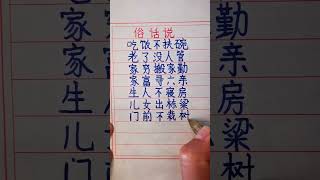 俗话说
吃饭不扶碗
老了没人管
家穷搬家勤
家富寻六亲
生人不寝房
儿女出栋梁
门前不栽树